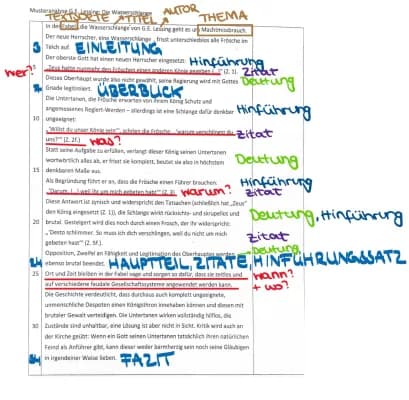 Musteranalyse G.E. Lessing: Die Wasserschlange
TEXTSORTE TITEL AUTOR THEMA
In der Fabel „die Wasserschlange“ von G.E. Lessing geht es um Machtmissbrauch.
Der neue Herrscher, eine Wasserschlange, frisst unterschiedslos alle Frösche im
Teich auf. EINLEITUNG
Der oberste Gott hat einen neuen Herrscher eingesetzt: Hinführung
wer? „Zeus hatte nunmehr den Fröschen einen anderen König gegeben (…)“ (Z. 1). Zitat
Dieses Oberhaupt wurde also nicht gewählt, seine Regierung wird mit Gottes Deutung
Gnade legitimiert. ÜBERBLICK
Die Untertanen, die Frösche erwarten von ihrem König Schutz und
angemessenes Regiert-Werden – allerdings ist eine Schlange dafür denkbar Hinführung
10 ungeeignet:
„Willst du unser König sein“, schrien die Frösche, „warum verschlingst du Zitat
uns?“ (Z. 2f.) was?
Statt seine Aufgabe zu erfüllen, verlangt dieser König seinen Untertanen
wortwörtlich alles ab, er frisst sie komplett, beutet sie also in höchstem Deutung
15 denkbaren Maße aus.
Als Begründung führt er an, dass die Frösche einen Führer brauchen: Hinführung
„Darum, (…) weil ihr um mich gebeten habt“ (Z. 3). warum? Zitat
Diese Antwort ist zynisch und widerspricht den Tatsachen (schließlich hat „Zeus“
den König eingesetzt (Z. 1)), die Schlange wirkt rücksichts- und skrupellos und Deutung, Hinführung
20 brutal. Gesteigert wird dies noch durch einen Frosch, der ihr widerspricht:
„Desto schlimmer. So muss ich dich verschlingen, weil du nicht um mich Zitat
gebeten hast“ (Z. 5f.).
Opposition, Zweifel an Fähigkeit und Legitimation des Oberhauptes werden Deutung
ebenso brutal beendet. HAUPTTEIL, ZITATE, HINFÜHRUNGSSATZ
25 Ort und Zeit bleiben in der Fabel vage und sorgen so dafür, dass sie zeitlos und wann?
auf verschiedene feudale Gesellschaftssysteme angewendet werden kann. + wo?
Die Geschichte verdeutlicht, dass durchaus auch komplett ungeeignete,
unmenschliche Despoten einen Königsthron innehaben können und diesen mit
brutaler Gewalt verteidigen. Die Untertanen wirken vollständig hilflos, die
30 Zustände sind unhaltbar, eine Lösung ist aber nicht in Sicht. Kritik wird auch an
der Kirche geübt: Wenn ein Gott seinen Untertanen tatsächlich ihren natürlichen
Feind als Anführer gibt, kann dieser weder barmherzig sein noch seine Gläubigen
in irgendeiner Weise lieben. FAZIT